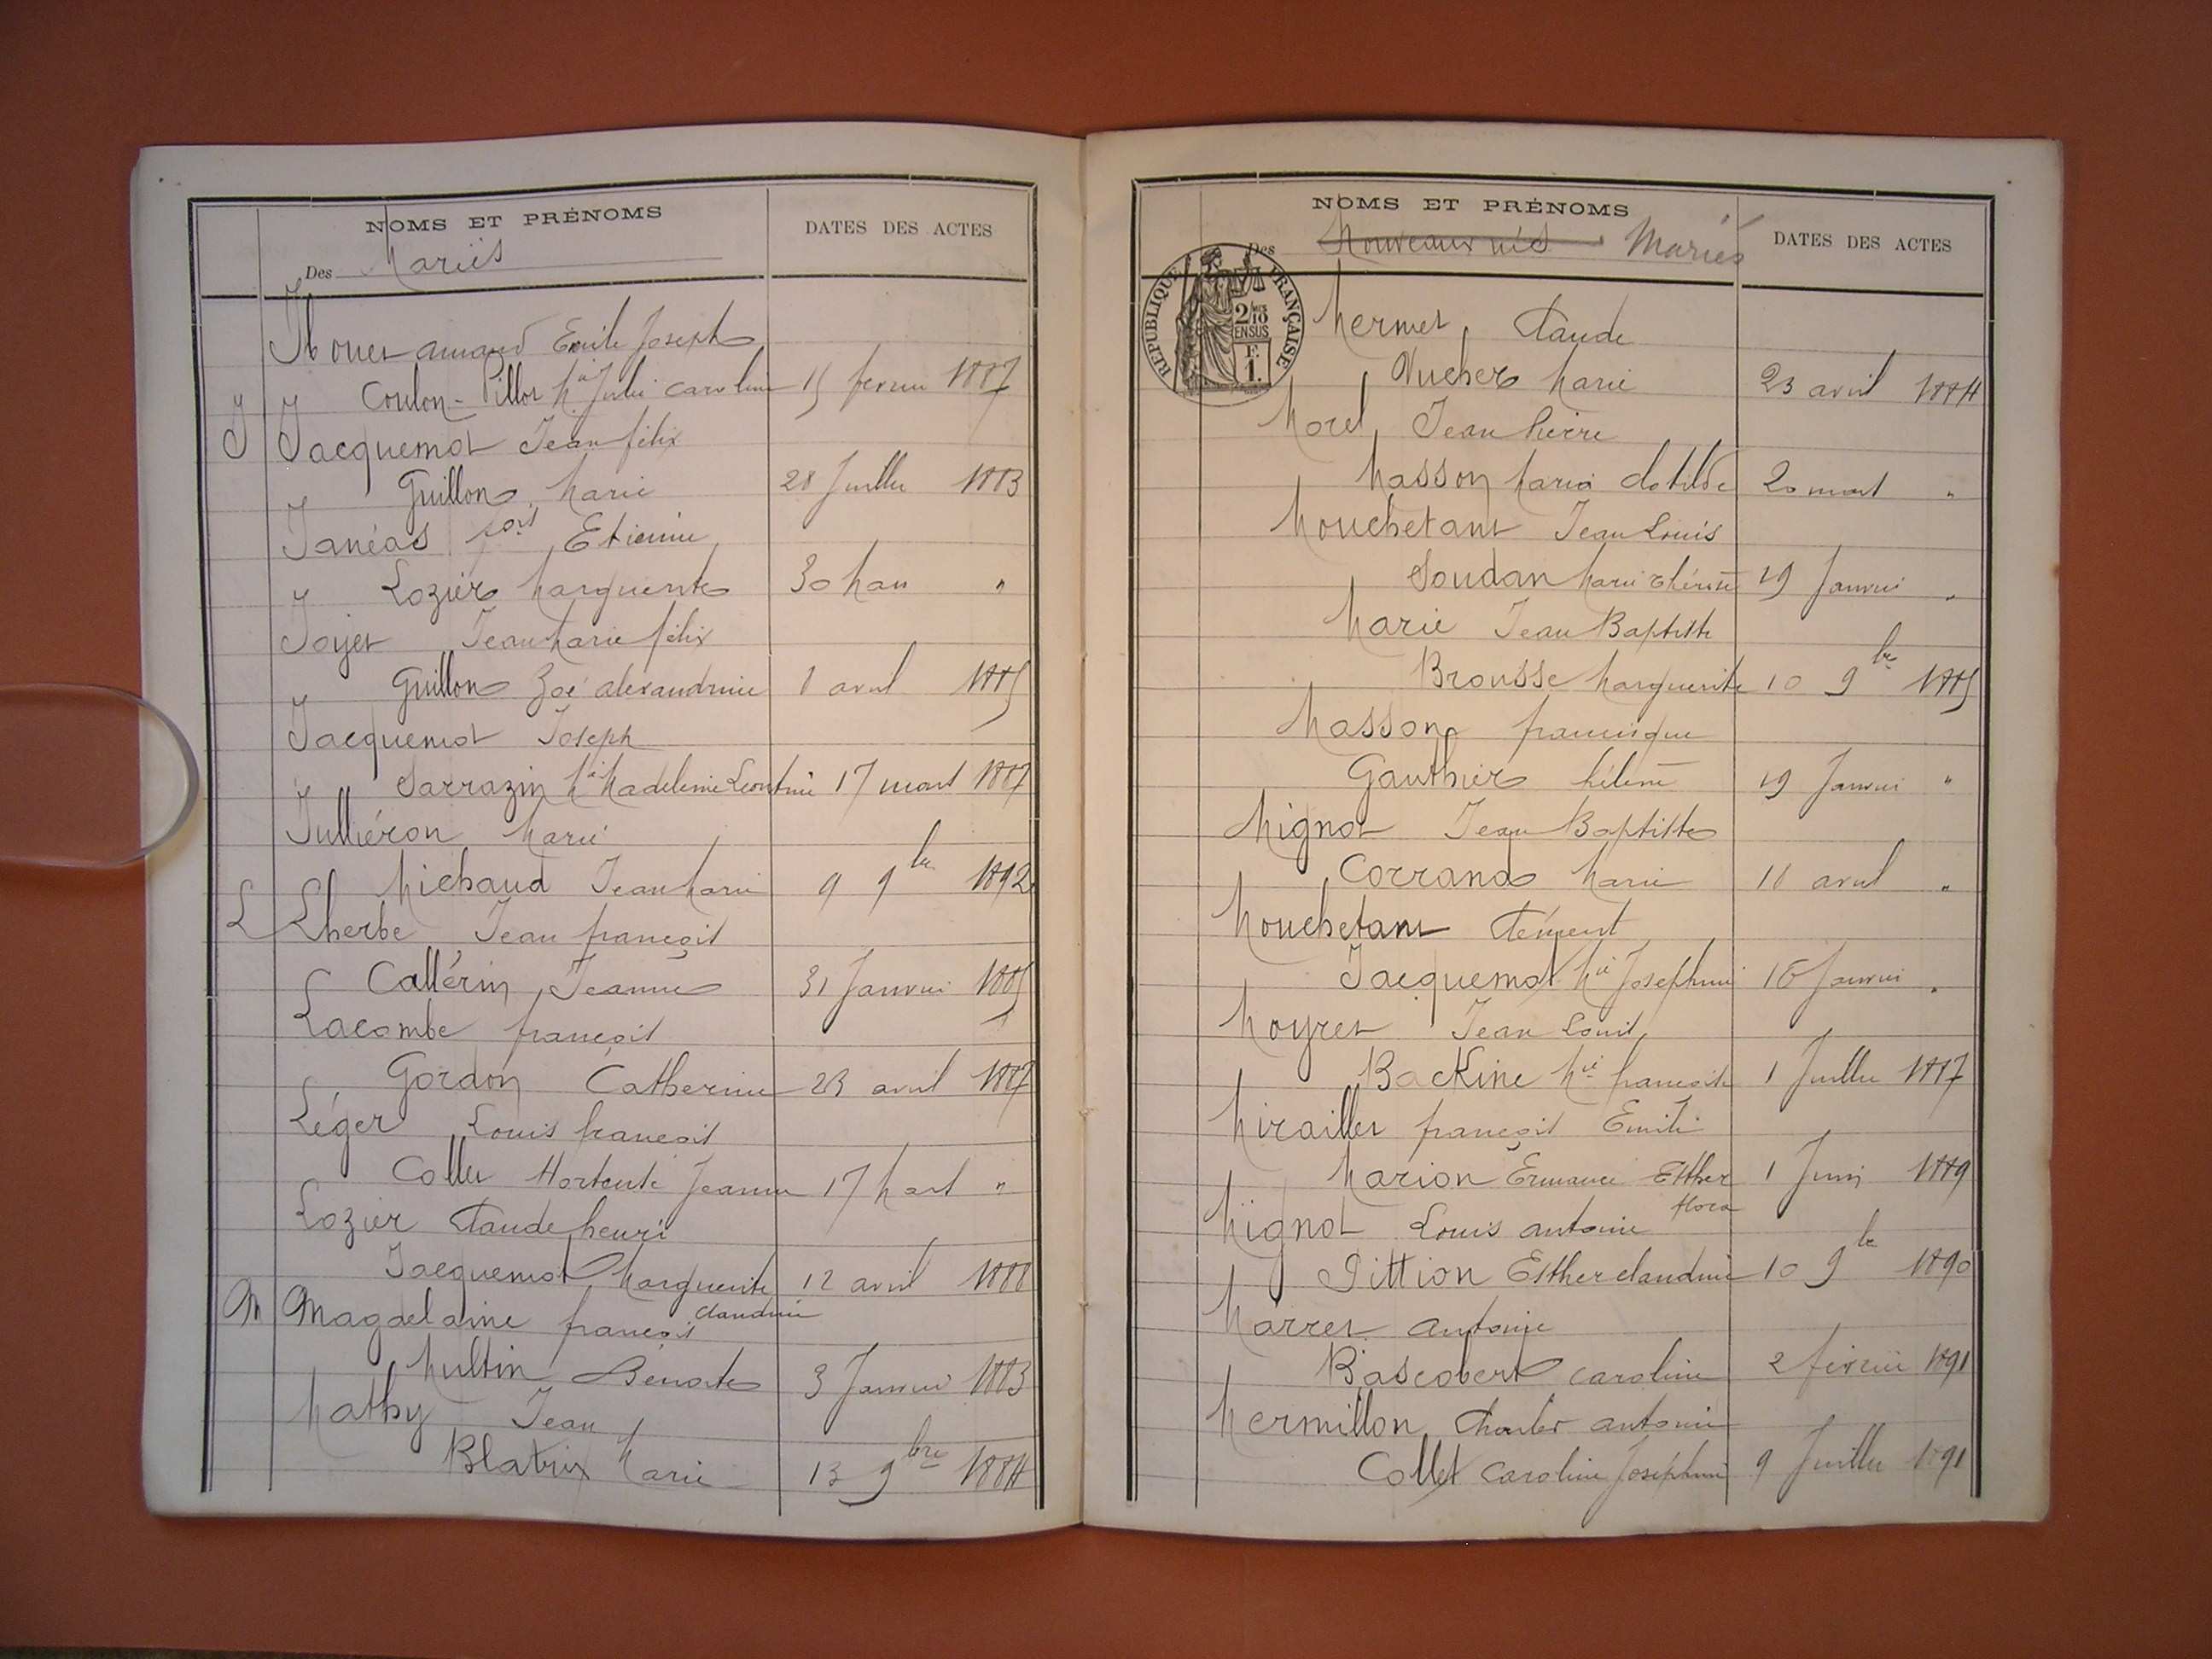 NOMS ET PRÉNOMS
DATES DES ACTES
Des Mariés
Emile Joseph
Coulon-Pillot Mie Julie Caroline 15 fevrier 1887
J Jacquemot Jean félix
Guillon Marie 28 Juillet 1883
Janéas Etienne
Lozier Marguerite 30 Mars "
Joyet Jean Marie félix
Guillon Zoé alexandrine 8 avril 1885
Jacquemot Joseph
Sarrazin Mie Madeleine Leontine 17 mars 1887
Julliéron Marie
Michaud Jean Marie 9 9bre 1892
L Lherbe Jean françois
Callérin Jeanne 31 Janvier 1885
Lacombe françois
Gordon Catherine 23 avril 1887
Léger Louis françois
Collet Hortense Jeanne 17 Mars "
Lozier Claude henri
Jacquemot Marguerite 12 avril 1888
Claudine
M Magdelaine françois
Multin Benoite 3 Janvier 1883
Mathy Jean
Blatrix Marie 13 9bre 1884
NOMS ET PRÉNOMS
DATES DES ACTES
Des Nouveaux nés Mariés
RÉPUBLIQUE FRANÇAISE
2/10
EN SUS
F.
1.
Mermet Claude
Vucher Marie 23 avril 1884
Morel Jean Pierre
Masson Maria Clotilde 20 mars "
Mouchetant Jean Louis
Soudan Marie Thérèse 19 Janvier "
Marie Jean Baptiste
Brousse Marguerite 10 9bre 1885
Masson francisque
Gauthier hélène 19 Janvier "
Mignot Jean Baptiste
Corrand Marie 18 avril "
Mouchetant Clément
Jacquemot Mie Josephine 16 Janvier "
Moyret Jean Louis
Backine Mie françoise 1 Juillet 1887
Miraillet françois Emile
Marion Ermance Esther 1 Juin 1889
flora
Mignot Louis antoine
Pittion Esther claudine 10 9bre 1890
Marret antoine
Bascobert caroline 2 février 1891
Mermillon Charles antoine
Collet Caroline Joséphine 9 Juillet 1891